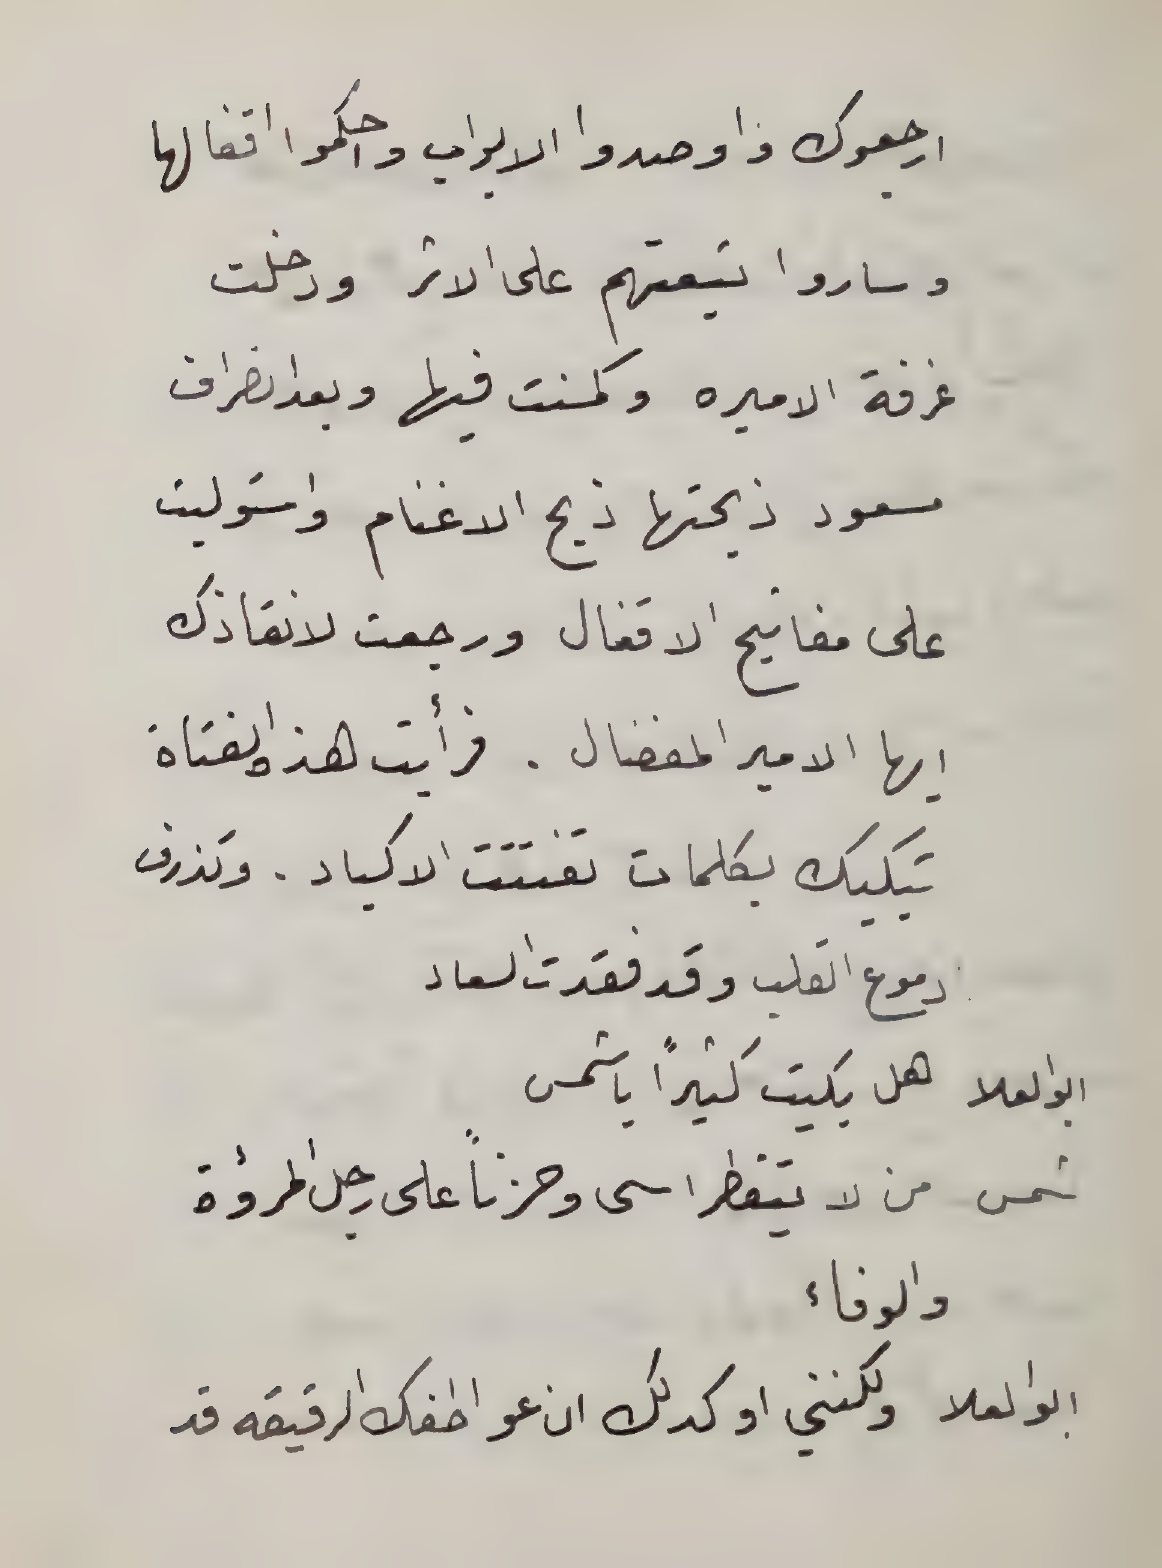 ارجعوك فاوصدوا الابواب واحكموا اقفالها
وساروا تتبعتهم على الاثر ودخلت
غرفة الاميره وكمنت فيها وبعد انصراف
مسعود ذبحتها ذبح الاغنام واستوليت
على مفاتيح الاقفال ورجعت لانقاذك
ايها الامير المفضال . فرأيت هذه الفتاة
تبكيك بكلمات تفتتت الاكباد . وتذرف
دموع القلب وقد فقدت السعاد
ابو العلا هل بكيت كثيراً يا شمس
شمس من لا يتفطر اسى وحزناً على رجل المرؤة
والوفاء
ابو العلا ولكنني اوكد لك ان عواطفك الرقيقه قد